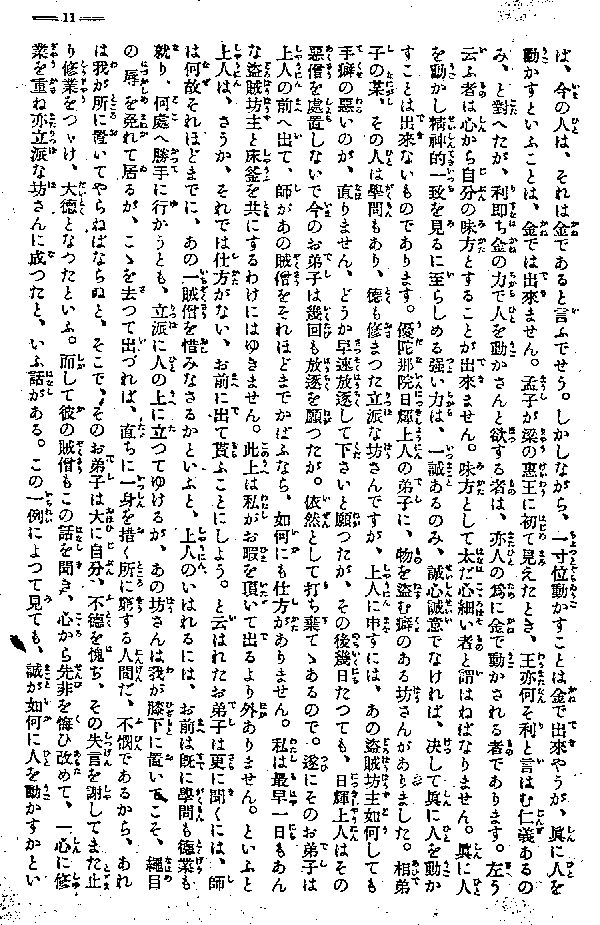 — 11 —
ば、今の人は、それは金であると言ふでせう。しかしながら、一寸位動かすことは金で出來やうが、眞に人を
動かすといふことは、金では出來ません。孟子が梁の惠王に初て見えたとき、王亦何ぞ利と言はむ仁義あるの
み、と對へたが、利即ち金の力で人を動かさんと欲する者は、亦人の爲に金で動かされる者であります。左う
云ふ者は心から自分の味方とすることが出來ません。味方として太だ心細い者と謂はねばなりません。眞に人
を動かし精神的一致を見るに至らしめる强い力は、一誠あるのみ、誠心誠意でなければ、決して眞に人を動か
すことは出來ないものであります。優陀那院日輝上人の弟子に、物を盜む癖のある坊さんがありました。相弟
子の某、その人は學問もあり、德も修まつた立派な坊さんですが、上人に申すには、あの盜賊坊主如何しても
手癖の惡いのが、直りません、どうか早速放逐して下さいと願つたが、その後幾日たつても、日輝上人はその
惡僧を處置しないで今のお弟子は幾回も放逐を願つたが。依然として打ち棄てゝあるので。遂にそのお弟子は
上人の前へ出て、師があの賊僧をそれほどまでかばふなら、如何にも仕方がありません。私は最早一日もあん
な盜賊坊主と床釜を共にするわけにはゆきません。此上は私がお暇を頂いて出るより外ありません。といふと
上人は、さうか、それでは仕方がない、お前に出て貰ふことにしよう。と云はれたお弟子は更に聞くには、師
は何故それほどまでに、あの一賊僧を惜みなさるかといふと、上人のいはれるには、お前は既に學問も德業も
就り、何處へ勝手に行かうとも、立派に人の上に立つてゆけるが、あの坊さんは我が膝下に置いてこそ、繩目
の辱を免れて居るが、こゝを去つて出づれば、直ちに一身を措く所に窮する人間だ、不憫であるから、あれ
は我が所に置いてやらねばならぬと、そこで、そのお弟子は大に自分、不德を愧ぢ、その失言を謝してまた止
り修業をつゞけ、大德となつたといふ。而して彼の賊僧もこの話を聞き、心から先非を悔ひ改めて、一心に修
業を重ね亦立派な坊さんに成つたと、いふ話がある。この一例によつて見ても、誠が如何に人を動かすかとい